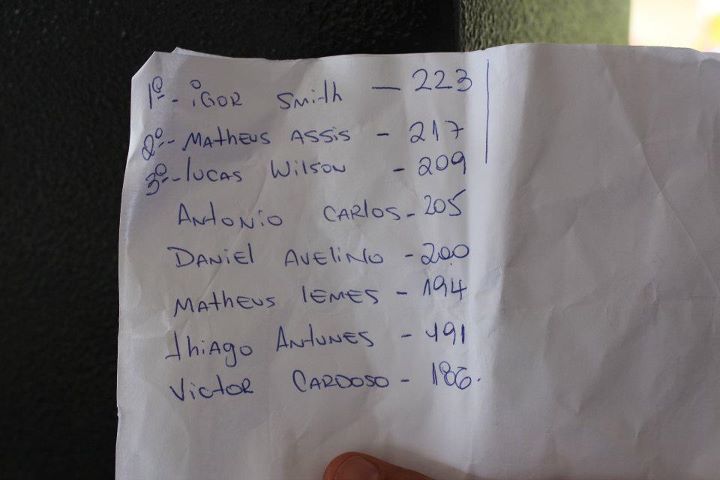 1º - iGOR Smith — 223
2º - MATHEUS ASSIS - 217
3º - LUCAS WilSON - 209
ANTONIO CARLOS - 205
DANiEl AVEliNO - 200
MATHEUS lEMES - 194
THiAGO ANTUNES - 191
VicTOR CARDOSO - 186.